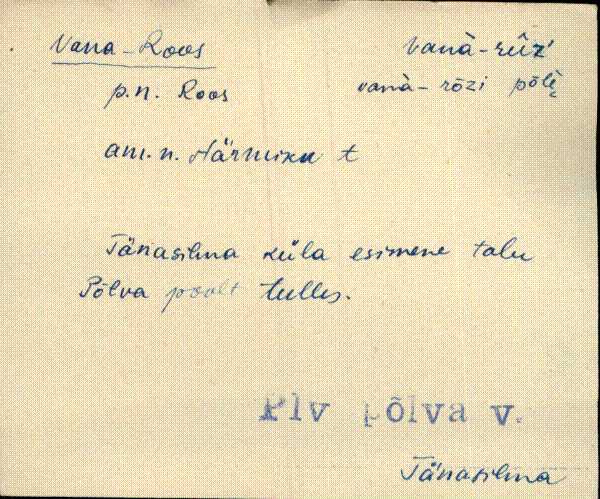 Vana-Roos vanà-rûz'
p.n. Roos vanà-rōzi põlè
am.n. Härmiku t
Tänasilma küla esimene talu
Põlva poolt tulles.
Plv põlva v.
Tänasilma